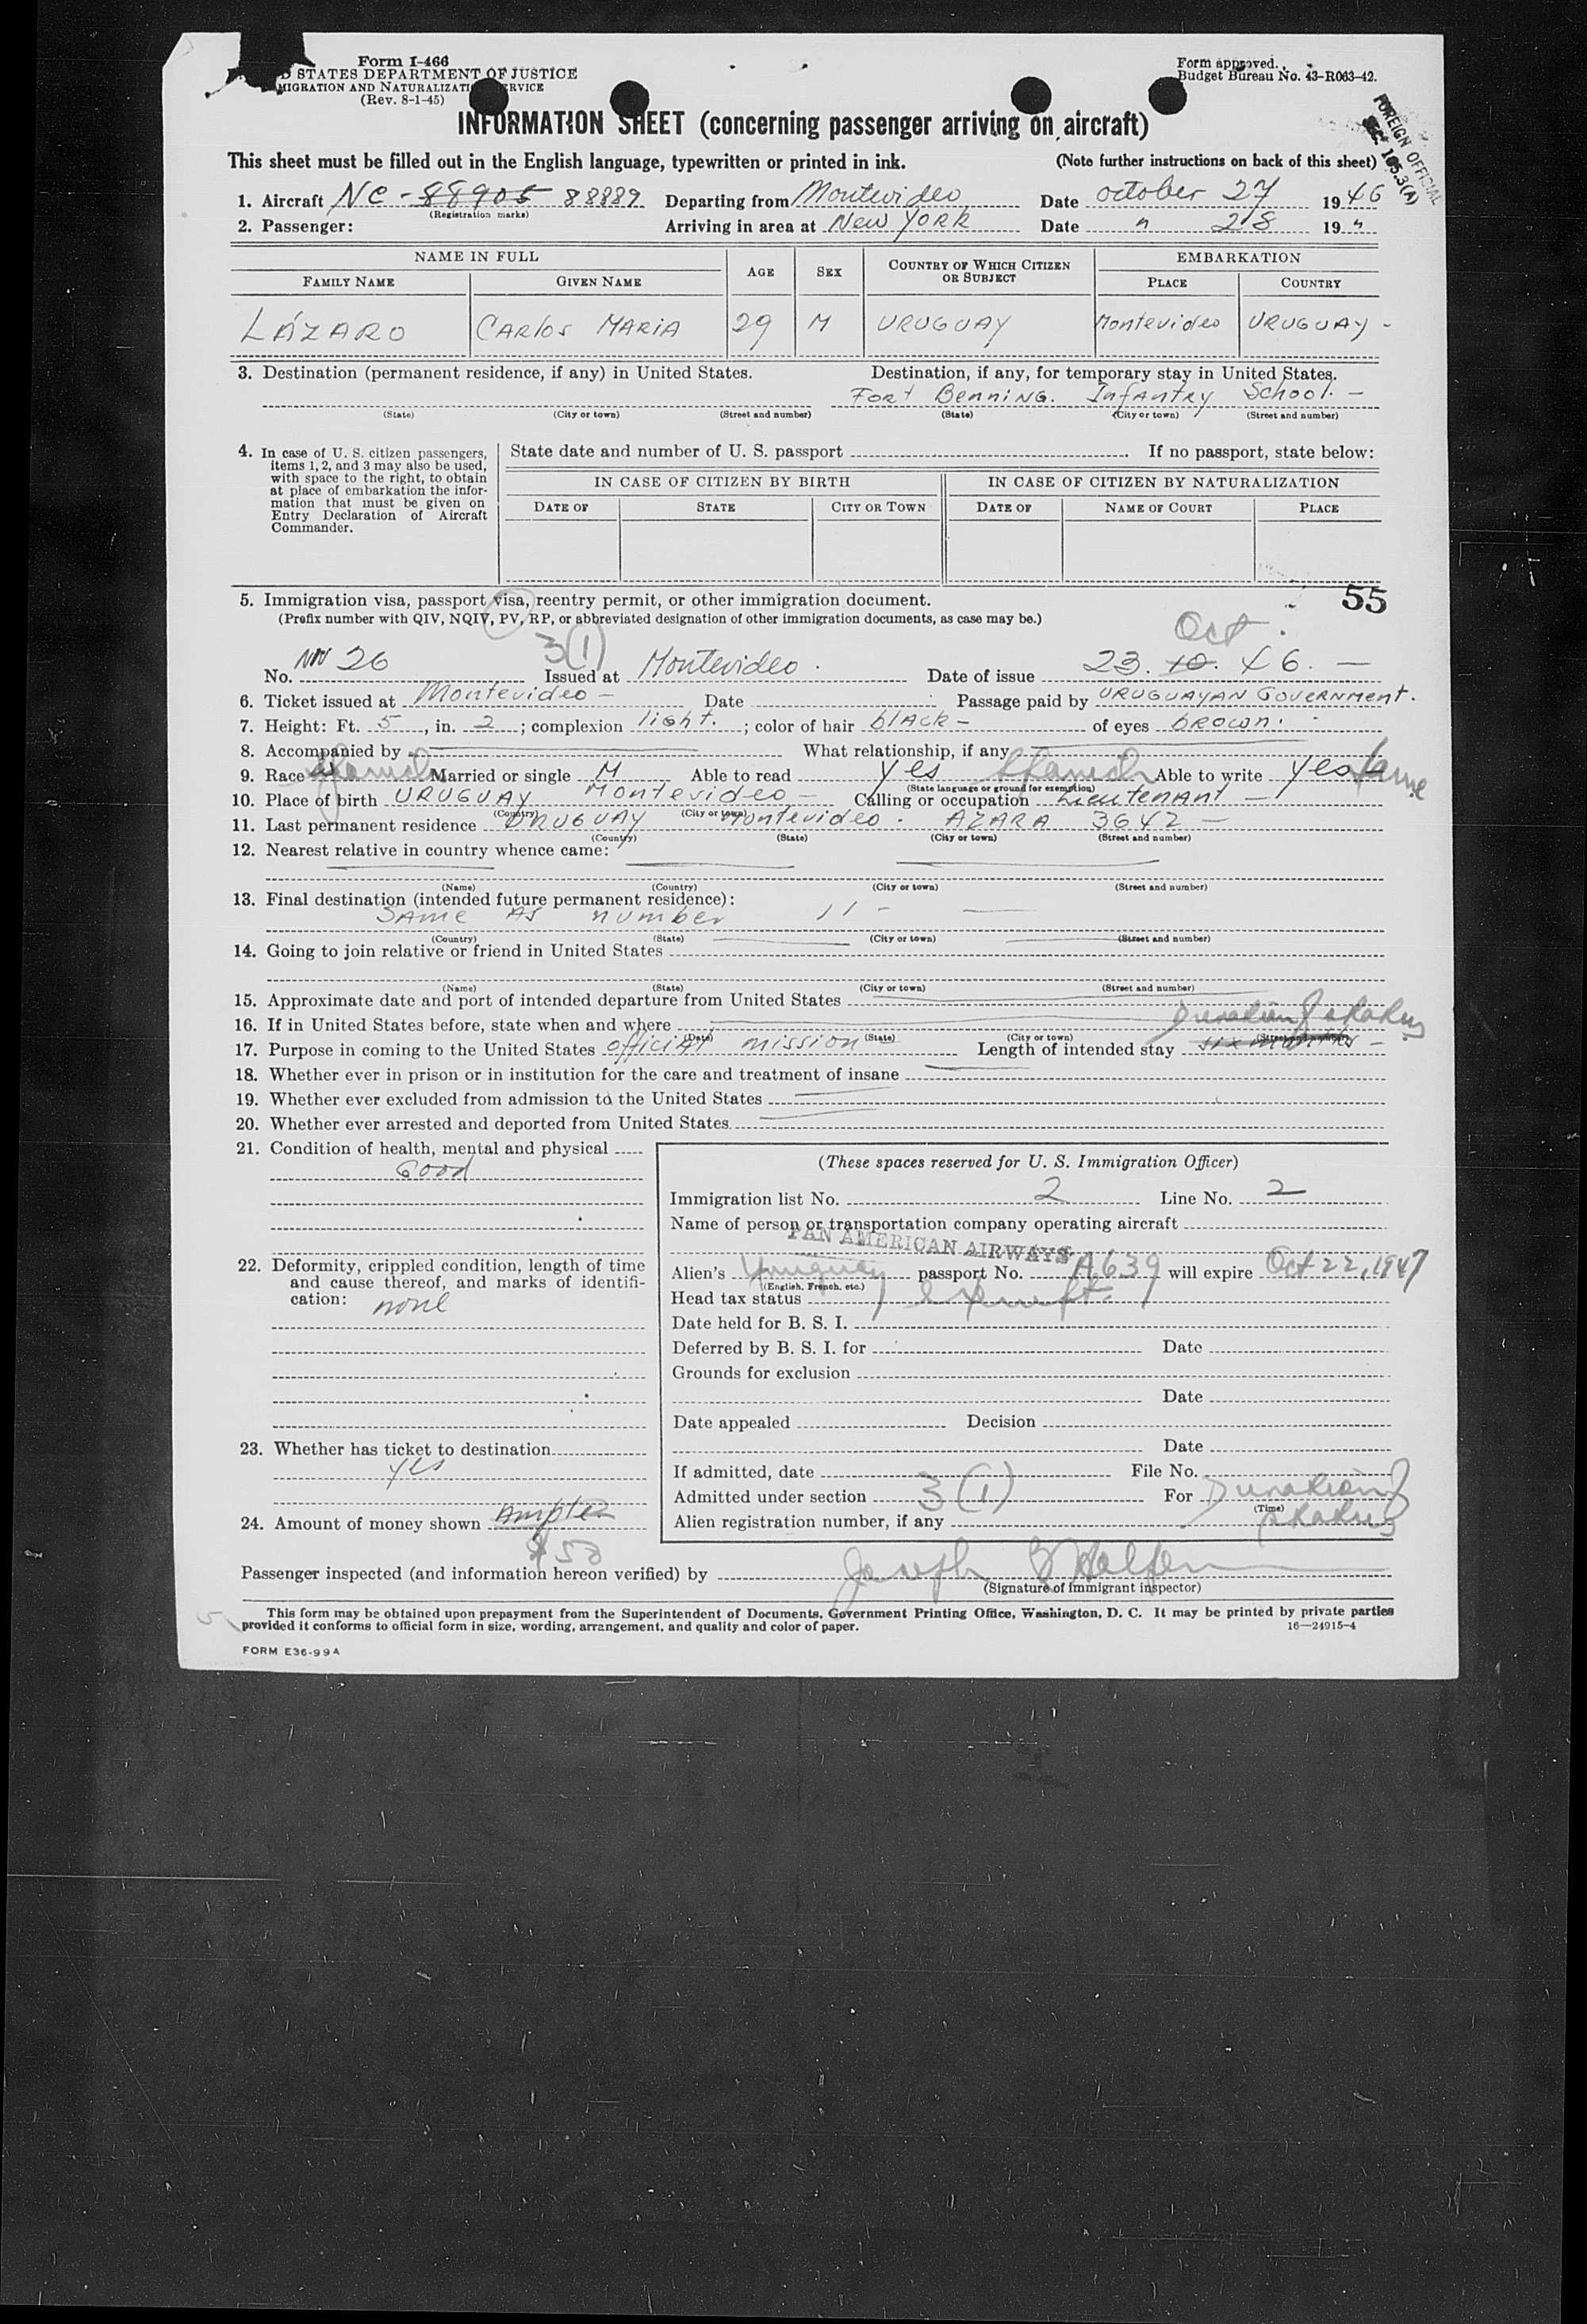 Form I-466
STATES DEPARTMENT OF JUSTICE
MIGRATION AND NATURALIZATION SERVICE
(Rev. 8-1-45)
Form approved.
Budget Bureau No. 43-R063-42.
FOREIGN OFFICIAL
SEC 105.3(A)
INFORMATION SHEET (concerning passenger arriving on aircraft)
This sheet must be filled out in the English language, typewritten or printed in ink. (Note further instructions on back of this sheet)
1. Aircraft NC-88905 88889 Departing from Montevideo Date october 27 1946
(Registration marks)
2. Passenger: Arriving in area at New YORK Date " 28 19 "
NAME IN FULL AGE SEX COUNTRY OF WHICH CITIZEN OR SUBJECT EMBARKATION
FAMILY NAME GIVEN NAME PLACE COUNTRY
LÁZARO CARlos MARIA 29 M URUGUAY Montevideo URUGUAY -
3. Destination (permanent residence, if any) in United States. Destination, if any, for temporary stay in United States.
FORT BenninG. InfAntRy School. -
(State) (City or town) (Street and number) (State) (City or town) (Street and number)
4. In case of U. S. citizen passengers, items 1, 2, and 3 may also be used, with space to the right, to obtain at place of embarkation the information that must be given on Entry Declaration of Aircraft Commander.
State date and number of U. S. passport If no passport, state below:
IN CASE OF CITIZEN BY BIRTH IN CASE OF CITIZEN BY NATURALIZATION
DATE OF STATE CITY OR TOWN DATE OF NAME OF COURT PLACE
55
5. Immigration visa, passport visa, reentry permit, or other immigration document.
(Prefix number with QIV, NQIV, PV, RP, or abbreviated designation of other immigration documents, as case may be.)
3(1) Oct.
No. 26 Issued at Montevideo. Date of issue 23. 10. 46. -
6. Ticket issued at Montevideo - Date Passage paid by URUGUAYAN GOVERNMENT.
7. Height: Ft. 5, in. 2; complexion light.; color of hair blAck - of eyes bROWn.
8. Accompanied by What relationship, if any
9. Race Spanish Married or single M Able to read yes Spanish Able to write yes same
(State language or ground for exemption)
10. Place of birth URUGUAY Montevideo - Calling or occupation Lieutenant -
(Country) (City or town)
11. Last permanent residence URUGUAY Montevideo. AZARA 3642 -
(Country) (State) (City or town) (Street and number)
12. Nearest relative in country whence came:
(Name) (Country) (City or town) (Street and number)
13. Final destination (intended future permanent residence):
SAme AS number 11 -
(Country) (State) (City or town) (Street and number)
14. Going to join relative or friend in United States
(Name) (State) (City or town) (Street and number)
15. Approximate date and port of intended departure from United States
16. If in United States before, state when and where Duration of status
(Date) (State) (City or town) (Street and number)
17. Purpose in coming to the United States officiAl mission Length of intended stay six months -
18. Whether ever in prison or in institution for the care and treatment of insane
19. Whether ever excluded from admission to the United States
20. Whether ever arrested and deported from United States
21. Condition of health, mental and physical
Good
22. Deformity, crippled condition, length of time and cause thereof, and marks of identification: none
23. Whether has ticket to destination
yes
24. Amount of money shown Ample
$50
(These spaces reserved for U. S. Immigration Officer)
Immigration list No. 2 Line No. 2
Name of person or transportation company operating aircraft
PAN AMERICAN AIRWAYS
Alien's Uruguay passport No. A639 will expire Oct 22, 1947
(English, French, etc.)
Head tax status exempt.
Date held for B. S. I.
Deferred by B. S. I. for Date
Grounds for exclusion
Date
Date appealed Decision
Date
If admitted, date File No.
Admitted under section 3(1) For Duration of status
(Time)
Alien registration number, if any
Passenger inspected (and information hereon verified) by Joseph
(Signature of immigrant inspector)
This form may be obtained upon prepayment from the Superintendent of Documents, Government Printing Office, Washington, D. C. It may be printed by private parties
provided it conforms to official form in size, wording, arrangement, and quality and color of paper. 16—24915-4
FORM E36-99A